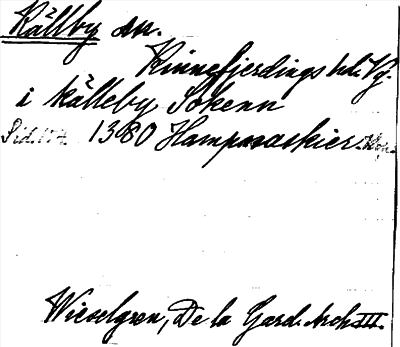 Källby sn.
Kinnefjerdings hd. Vg.
i källeby Sokenn
Sid. 174. 1380 Hampnaskier
Wieselgren, De la Gard. Arch. III.